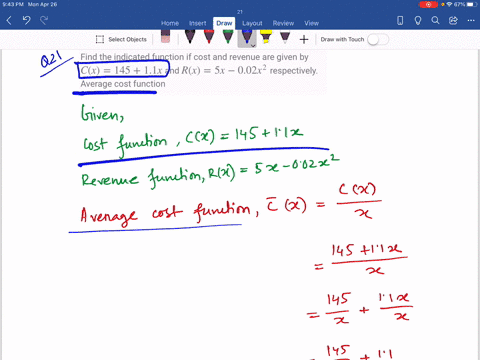 9:43 PM Mon Apr 26
21
67%
Home Insert Draw Layout Review View
Select Objects
Draw with Touch
Q21
Find the indicated function if cost and revenue are given by
C(x) = 145 + 1.1x and R(x) = 5x − 0.02x² respectively.
Average cost function
Given,
Cost function, C(x) = 145 + 1.1x
Revenue function, R(x) = 5x − 0.02x²
Average cost function, C̄(x) = C(x)/x
= 145 + 1.1x/x
= 145/x + 1.1x/x
145 + 1.1